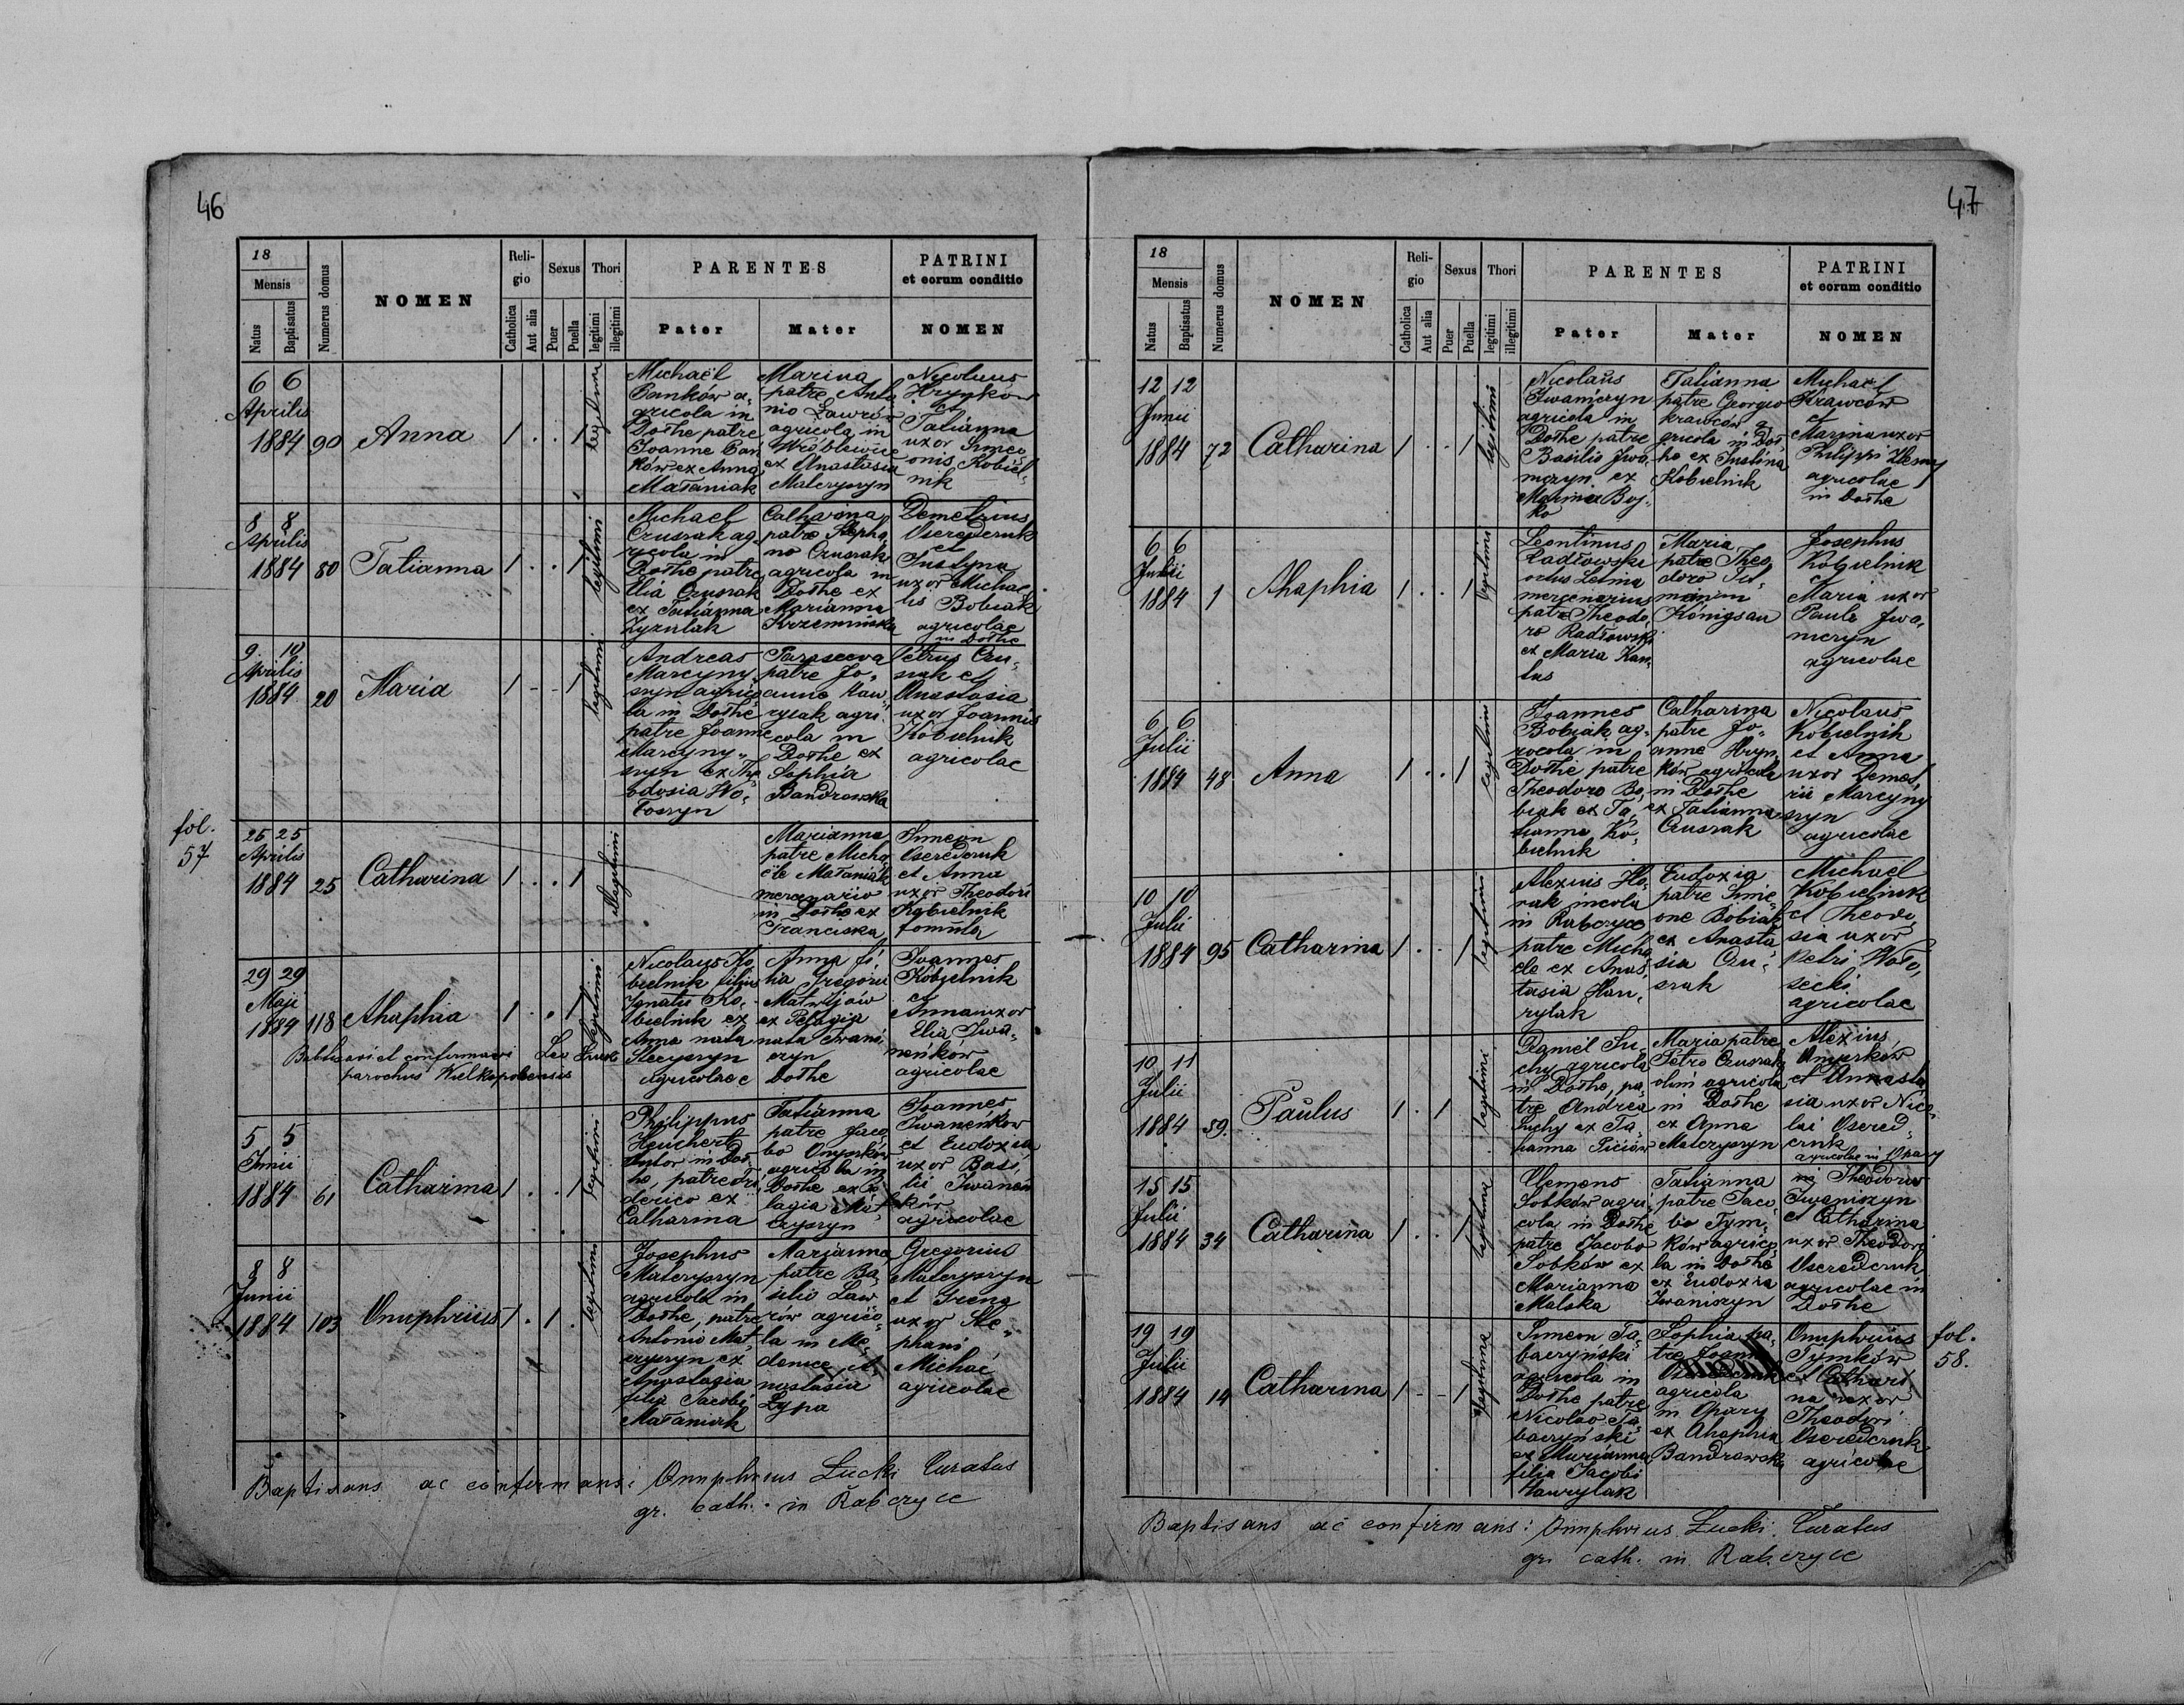 46
18
Mensis
Natus
Baptisatus
Numerus domus
NOMEN
Reli-
gio
Catholica
Aut alia
Sexus
Puer
Puella
Thori
legitimi
illegitimi
PARENTES
Pater
Mater
PATRINI
et eorum conditio
NOMEN
6 6
Aprilis
1884 90 Anna 1 . . 1 legitimi
Michaël
agricola in
Dołhe patre
Joanne Ban
ków ex Anna
Mataniak
Marina
patre Anto
nio Ławrów
agricola in
Wróblewice
ex Anastasia
Matcyszyn
Nicolaus
Hrynków
et
Tatianna
uxor Simeo
onis Kobiel-
nik
8 8
Aprilis
1884 80 Tatianna 1 . . 1 legitimi
Michael
Crusrak ag-
ricola in
Dołhe patre
Elia Crusrak
ex Tatianna
Catharina
patre Stepha
no Crusrak
agricola in
Dołhe ex
Marianna
Krzemińska
Demetrius
Oseredczuk
et
Justyna
uxor Michae
lis Bobiak
agricolae
in Dołhe
9. 10
Aprilis
1884 20 Maria 1 - - 1 legitimi
Andreas
Marcyny
szyn agrico
la in Dołhe
patre Joanne
Marcyny-
szyn ex The
odosia Wo-
łoszyn
Parasceva
patre Jo-
anne Haw
rylak agri-
cola in
Dołhe ex
Sophia
Bandrowska
Petrus Cru-
srak et
Anastasia
uxor Joannis
Kobielnik
agricolae
fol.
57
25 25
Aprilis
1884 25 Catharina 1 . . . 1 illegitimi
Marianna
patre Micha
ële Mataniak
mercenario
in Dołhe ex
Franciska
Simeon
Oseredczuk
et Anna
uxor Theodori
Kobielnik
29 29
Maji
1884 118 Ahaphia 1 . . 1 legitimi
Nicolaus Ko-
bielnik filius
Ignatii Ko-
bielnik ex
Anna nata
Stecyszyn
agricolae e
Anna fi-
lia Gregorii
Matwijów
ex Pelagia
nata Iwani
czyn
Dołhe
Joannes
Kobielnik
et
Anna uxor
Elia Iwa-
neńków
agricolae
Babtisavi et confirmavi
parochus
5 5
Junii
1884 61 Catharina 1 . . 1 legitimi
Philippus
Heuchert
sutor in Doł
he, patre Fri
derico ex
Catharina
Tatianna
patre Jaco
bo Onyśków
agricola in
Dołhe ex Pe
lagia Mat
cyszyn
Joannes
Iwaneńków
et Eudoxia
uxor Basi
lii Iwaneń
ków
agricolae
8 8
Junii
1884 103 Onuphrius 1 . 1 . legitimi
Josephus
Matcyszyn
agricola in
Dołhe, patre
Antonio Mat
cyszyn ex
Anastasia
filia Jacobi
Mataniak
Marianna
patre Ba
silio Law
rów agrico
la in Me
denice A
nastasia
Zypa
Gregorius
Matcyszyn
et Irena
uxor Ste-
phani
Michać
agricolae
Baptisans ac confirmans: Onuphrius Łucki Curatus
gr. cath. in Rabczyce
47
18
Mensis
Natus
Baptisatus
Numerus domus
NOMEN
Reli-
gio
Catholica
Aut alia
Sexus
Puer
Puella
Thori
legitimi
illegitimi
PARENTES
Pater
Mater
PATRINI
et eorum conditio
NOMEN
12 12
Junii
1884 72 Catharina 1 . . 1 legitimi
Nicolaus
Iwaniczyn
agricola in
Dołhe patre
Basilio Iwa-
niczyn ex
Marina Boj-
ko
Tatianna
patre Georgio
Krawców a
gricola in Doł
he ex Justina
Kobielnik
Michael
Krawców
et
Marina uxor
Philippi
agricolae
in Dołhe
6 6
Julii
1884 1 Ahaphia 1 . . 1 legitimi
Leontinus
Radłowski
ortus Letnia
mercenarius
patre Theodo-
ro Radłowski
ex Maria
Maria
patre Theo
doro
Königsau
Josephus
Kobielnik
et
Maria uxor
Pauli Iwa-
niczyn
agricolae
6 6
Julii
1884 48 Anna 1 . . 1 legitimi
Joannes
Bobiak ag-
ricola in
Dołhe patre
Theodoro Bo-
biak ex Ta-
tianna Ko-
bielnik
Catharina
patre Jo-
anne Hryn
ków agricola
in Dołhe
ex Tatianna
Crusrak
Nicolaus
Kobielnik
et Anna
uxor Demet
rii Marcyny
szyn
agricolae
10 10
Julii
1884 95 Catharina 1 . . 1 legitimi
Alexius Ho-
rak incola
in Rabczyce
patre Micha
ele ex Anas-
tasia Haw-
rylak
Eudoxia
patre Sime-
one Bobiak
ex Anasta
sia Cru-
srak
Michaël
Kobielnik
et Theodo-
sia uxor
Petri Woło-
secki
agricolae
10 11
Julii
1884 59. Paulus 1 . 1 legitimi
Daniel Su-
chy agricola
in Dołhe, pa-
tre Andrea
Suchy ex Ta-
Maria patre
Petro Crusrak
olim agricola
in Dołhe
ex Anna
Matcyszyn
Alexius
Onyśków
et Annasta
sia uxor Nico
lai Osered-
czuk
agricolae in Opary
15 15
Julii
1884 34 Catharina 1 . . 1 legitimi
Clemens
Sobków agri-
cola in Dołhe
patre Jacobo
Sobków ex
Marianna
Malska
Tatianna
patre Jaco-
bo Tym-
ków agrico
la in Dołhe
ex Eudoxia
Iwaniszyn
Theodorus
Iwaniszyn
et Catharina
uxor Theodori
Oseredczuk
agricolae in
Dołhe
19 19
Julii
1884 14 Catharina 1 - - 1 legitima
Simeon Ta-
baczyński
agricola in
Dołhe patre
Nicolao Ta-
baczyński
ex Marianna
filia Jacobi
Hawrylak
Sophia pa-
tre Joanne
Oseredczuk
agricola
in Opary
ex Ahaphia
Bandrowska
Onuphrius
Tymków
et Cathari
na uxor
Theodori
Oseredczuk
agricolae
fol.
58.
Baptisans ac confirmans: Onuphrius Łucki Curatus
gr. cath. in Rabczyce